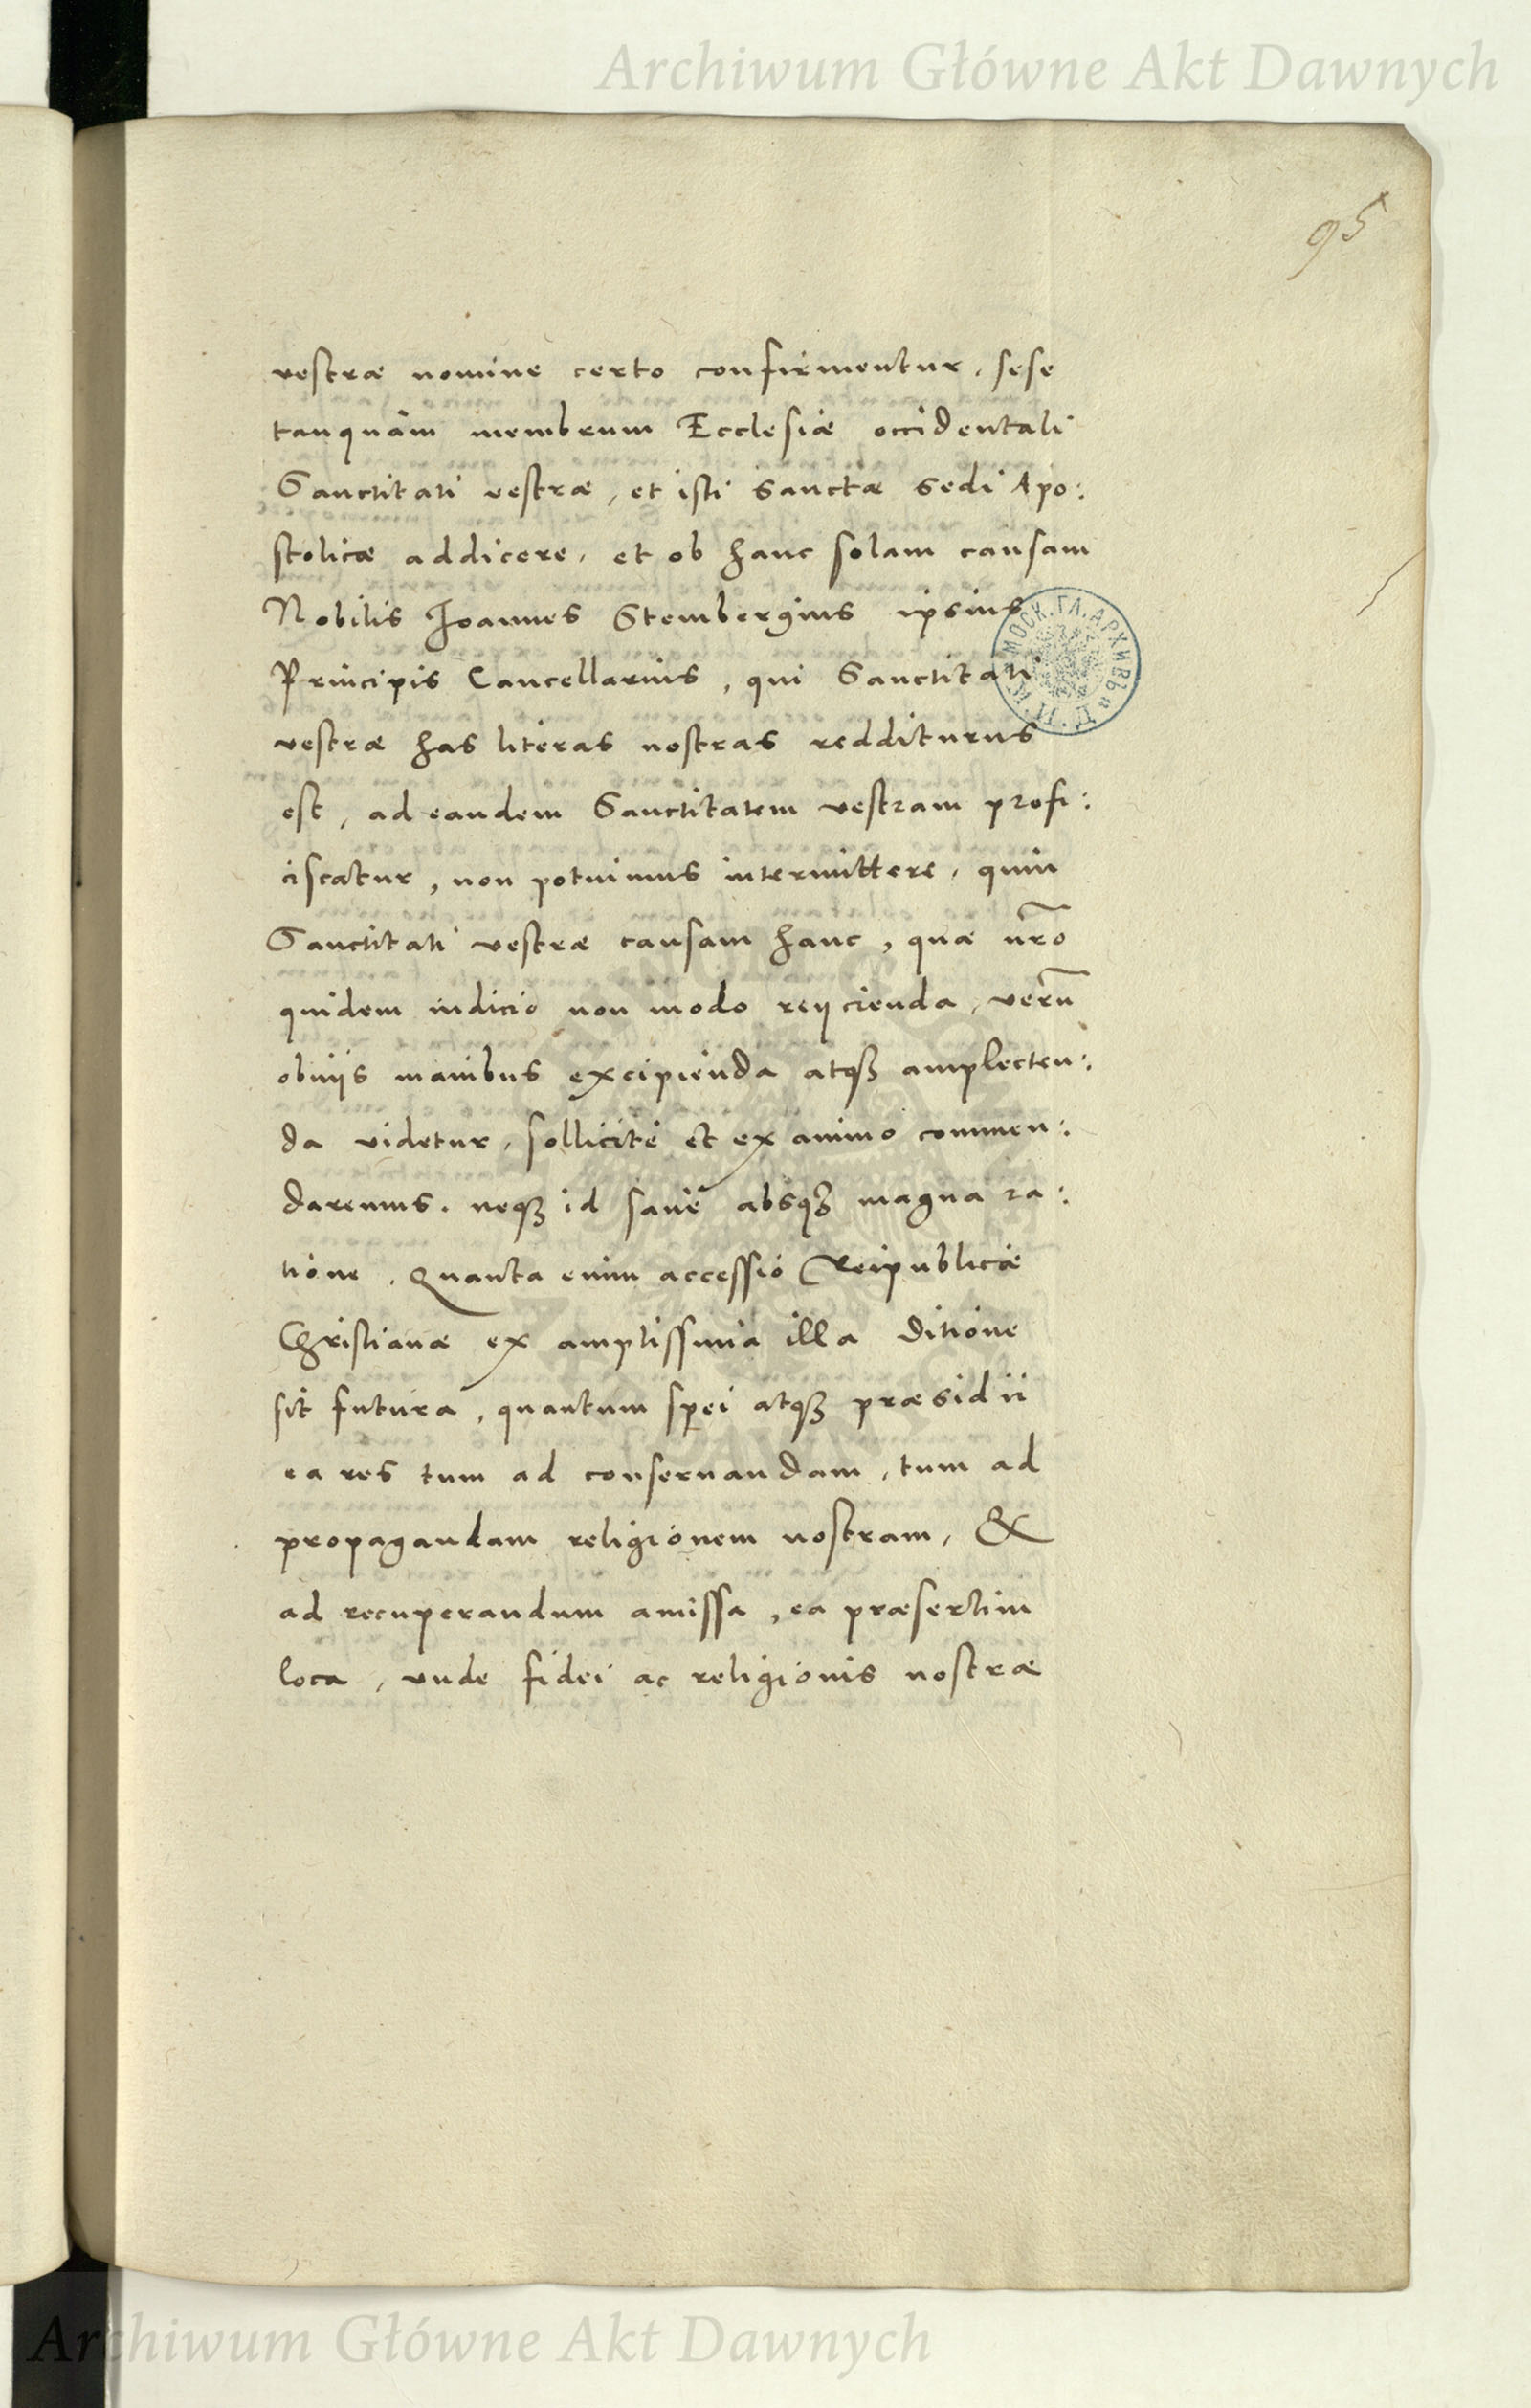 Archiwum Główne Akt Dawnych
95
vestræ nomine certo confirmentur, sese
tanquàm membrum Ecclesiæ occidentali
Sanctitati vestræ, et isti sanctæ sedi Apo:
stolicæ addicere, et ob hanc solam causam
Nobilis Joannes Stembergius ipsius
Principis Cancellarius, qui Sanctitati
vestræ has literas nostras redditurus
est, ad eandem Sanctitatem vestram profi:
ciscatur, non potuimus intermittere, quin
Sanctitati vestræ causam hanc, quæ nr̃o
quidem iudicio non modo reijcienda, verũ
obuijs manibus excipienda atqꝫ amplecten:
da videtur, sollicitè et ex animo commen:
daremus. neqꝫ id sanè absqꝫ magna ra:
tione. Quanta enim accessio Reipublicæ
Christianæ ex amplissima illa ditione
sit futura, quantum spei atqꝫ præsidii
ea res tum ad conseruandam, tum ad
propagandam religionem nostram, &
ad recuperandum amissa, ea præsertim
loca, vnde fidei ac religionis nostræ
МОСК. ГЛ. АРХИВЪ
Archiwum Główne Akt Dawnych